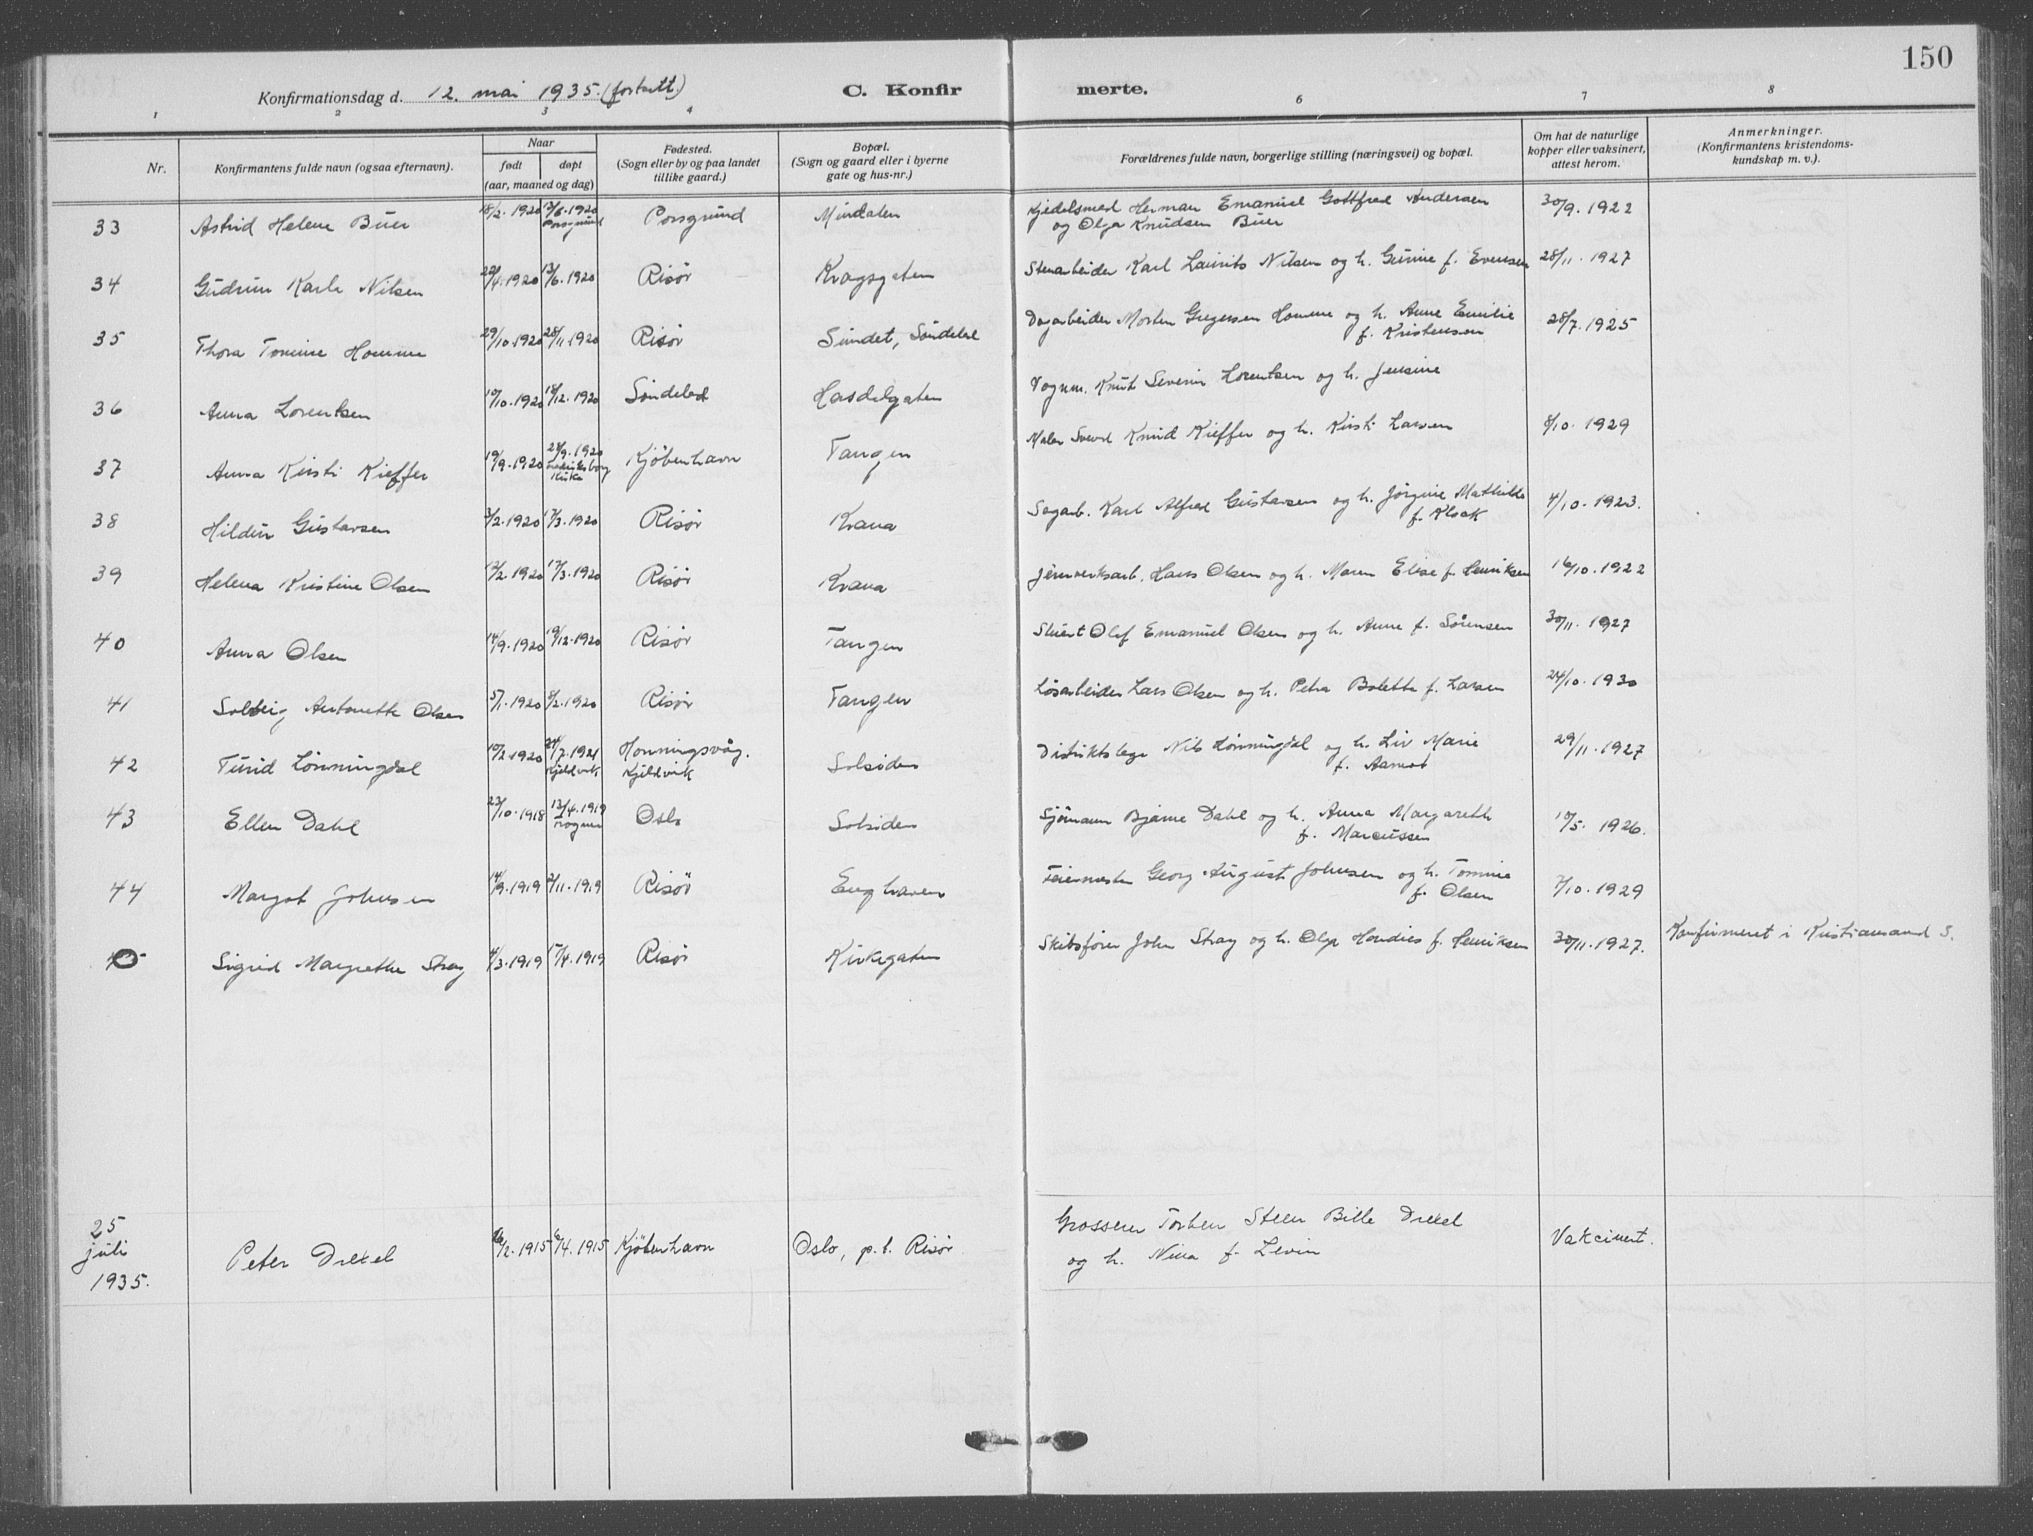 150
Konfirmationsdag d. 12. mai 1935. (fortsatt) C. Konfirmerte.
1 2 3 4 6 7 8
Nr.
Konfirmantens fulde navn (ogsaa efternavn).
Naar
født døpt
(aar, maaned og dag)
Fødested.
(Sogn eller by og paa landet
tillike gaard.)
Bopæl.
(Sogn og gaard eller i byerne
gate og hus-nr.)
Forældrenes fulde navn, borgerlige stilling (næringsvei) og bopæl.
Om hat de naturlige
kopper eller vaksinert,
attest herom.
Anmerkninger.
(Konfirmantens kristendoms-
kundskap m. v.).
33 Astrid Helene Buer 18/2.1920 13/6.1920 Porsgrund Porsgrund Mindalen Kjedelsmed Herman Emanuel Gottfred Andersen 30/9.1922
og Olga Knudsen Buer
34 Gudrun Karla Nilsen 22/4.1920 13/6.1920 Risør Kragsgaten Stenarbeider Karl Laurits Nilsen og h. Gunne f. Evensen 28/11.1927
35 Thora Tomine Homme 29/10.1920 28/11.1920 Risør Sundet, Søndeled Dagarbeider Morten Gregersen Homme og h. Anne Emilie 28/7.1925
f. Kristensen
36 Anna Lorentsen 10/10.1920 18/12.1920 Søndeled Hasdalgaten Vognm. Knut Severin Lorentsen og h. Jensine
37 Anna Kirsti Kieffer 19/9.1920 28/9.1920 Fredriksborg Kirke Kjöbenhavn Tangen Maler Svend Knud Kieffer og h. Kirsti Larsen 8/10.1929
38 Hildur Gustavsen 3/2.1920 17/3.1920 Risør Krana Sagarb. Karl Alfred Gustavsen og h. Jörgine Mathilde 4/10.1923.
f. Klock
39 Helena Kristine Olsen 12/2.1920 17/3.1920 Risør Krana Jernverksarb. Hans Olsen og h. Maren Elise f. Henriksen 16/10.1922
40 Anna Olsen 14/9.1920 19/12.1920 Risør Tangen Stuert Olaf Emanuel Olsen og h. Anne f. Sørensen 30/11.1927
41 Solveig Antonette Olsen 5/1.1920 8/2.1920 Risør Tangen Løsarbeider Lars Olsen og h. Petra Bolette f. Larsen 24/10.1930
42 Turid Lønningdal 10/2.1920 24/7.1921 Kjeldvik Honningsvåg. Solsiden Distriktslege Nils Lønningdal og h. Liv Marie 29/11.1927
Kjeldvik f. Aamot
43 Ellen Dahl 23/10.1918 13/4.1919 Frogner Oslo Solsiden Sjømann Bjarne Dahl og h. Anna Margareth 10/5.1926.
f. Marcussen
44 Margot Johnsen 14/9.1919 2/11.1919 Risør Enghaven Feiermester Georg August Johnsen og h. Tomine 7/10.1929
f. Olsen
Sigrid Margrethe Stray 4/3.1919 15/4.1919 Risør Kirkegaten Skibsfører John Stray og h. Olga f. Henriksen 30/11.1927. Konfirmeret i Kristiansand S.
25
juli
1935.
Peter Drexel 16/2.1915 6/4.1915 Kjöbenhavn Oslo, p.t. Risør. Grosserer Torben Steen Bille Drexel Vakcinert.
og h. Nina f. Levin